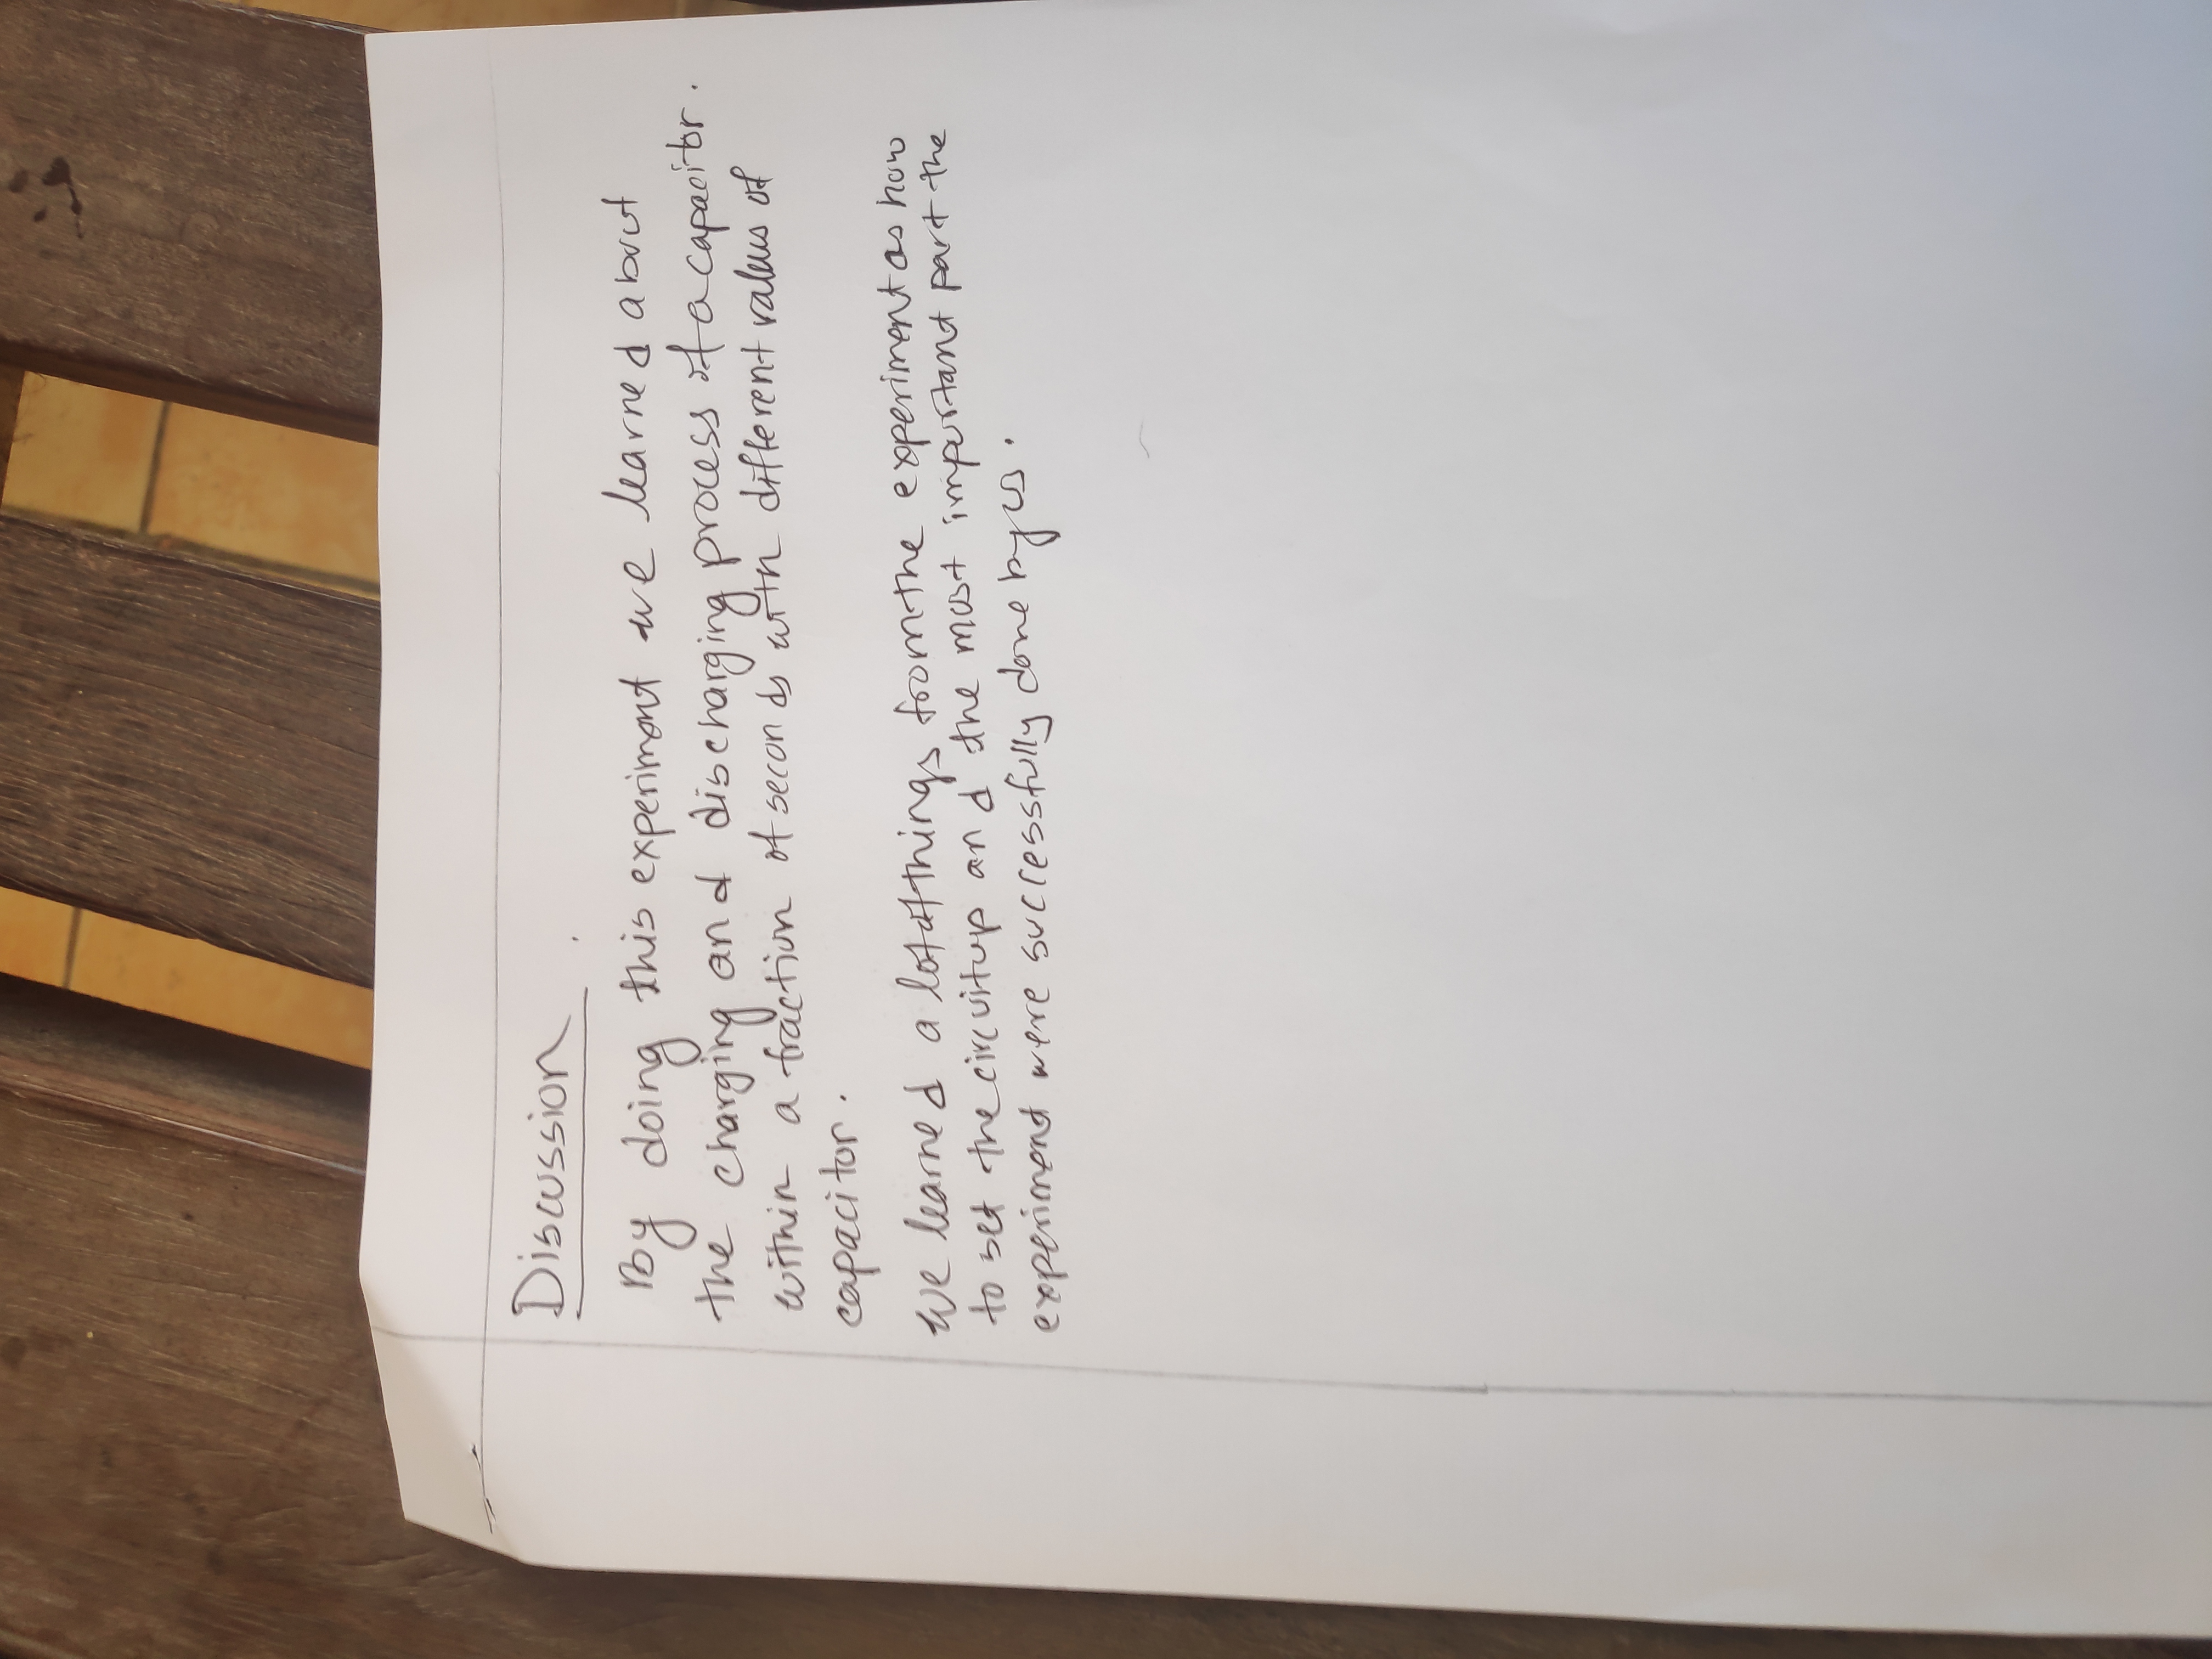 Discussion
By doing this experiment we learned about
the charging and discharging process of a capacitor.
within a fraction of seconds with different values of
capacitor.
We learned a lot of things from the experiment as how
to set the circuit up and the most important part the
experiment were successfully done by us.